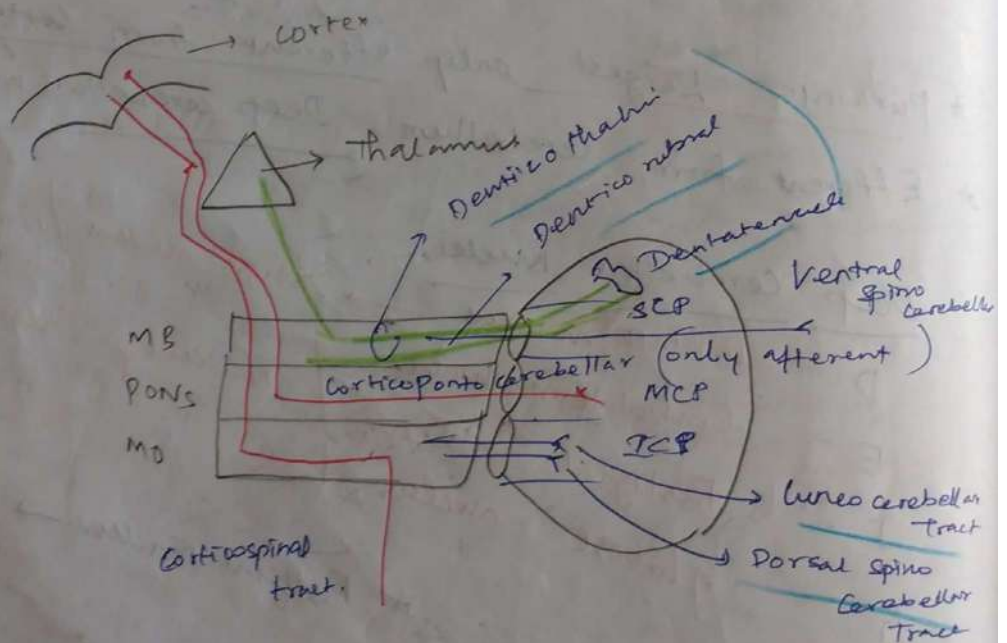 cortex
Thalamus
Dentico thalmi
Dentico rubral
Dentatenucle
Ventral
spino
cerebellar
SCP
(only afferent)
MB
PONS
MO
Corticoponto cerebellar
MCP
ICP
Cuneo cerebellar
Tract
Dorsal spino
Cerebellar
Tract
Corticospinal
tract.